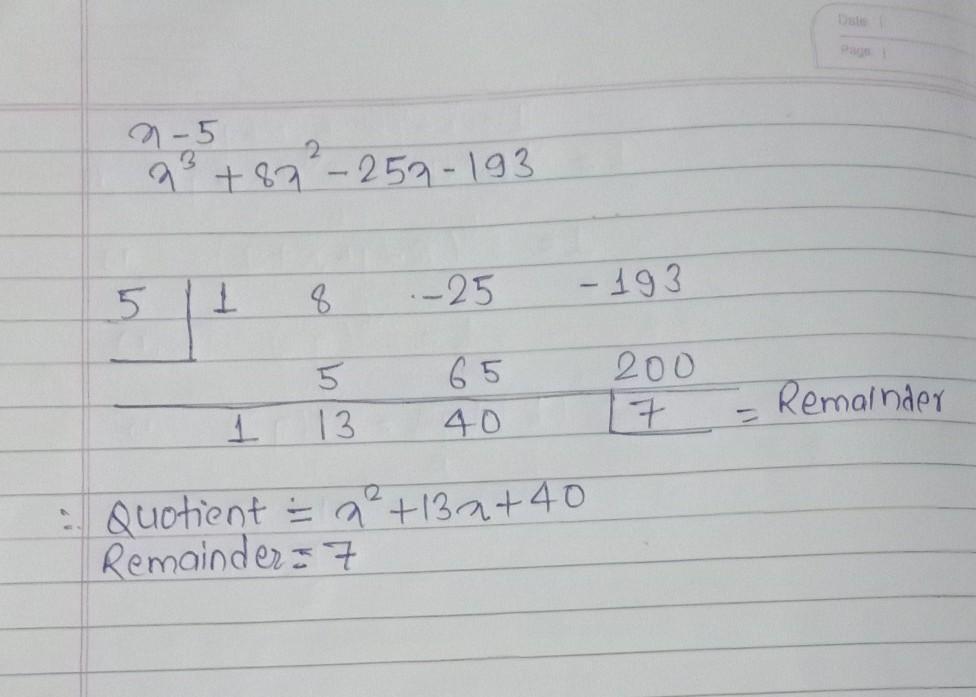 Date
Page
x-5
x³+8x²-25x-193
5 1 8 -25 -193
5 65 200
1 13 40 7 = Remainder
∴ Quotient = x²+13x+40
Remainder = 7